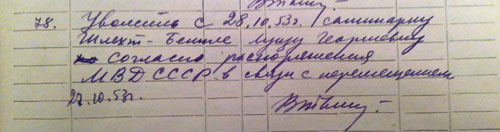 78. Уволить с 28.10.53г. санитарку
Шлехт- Луизу Георгиевну
согласно распоряжения
МВД СССР в связи с перемещением
27.10.53г.